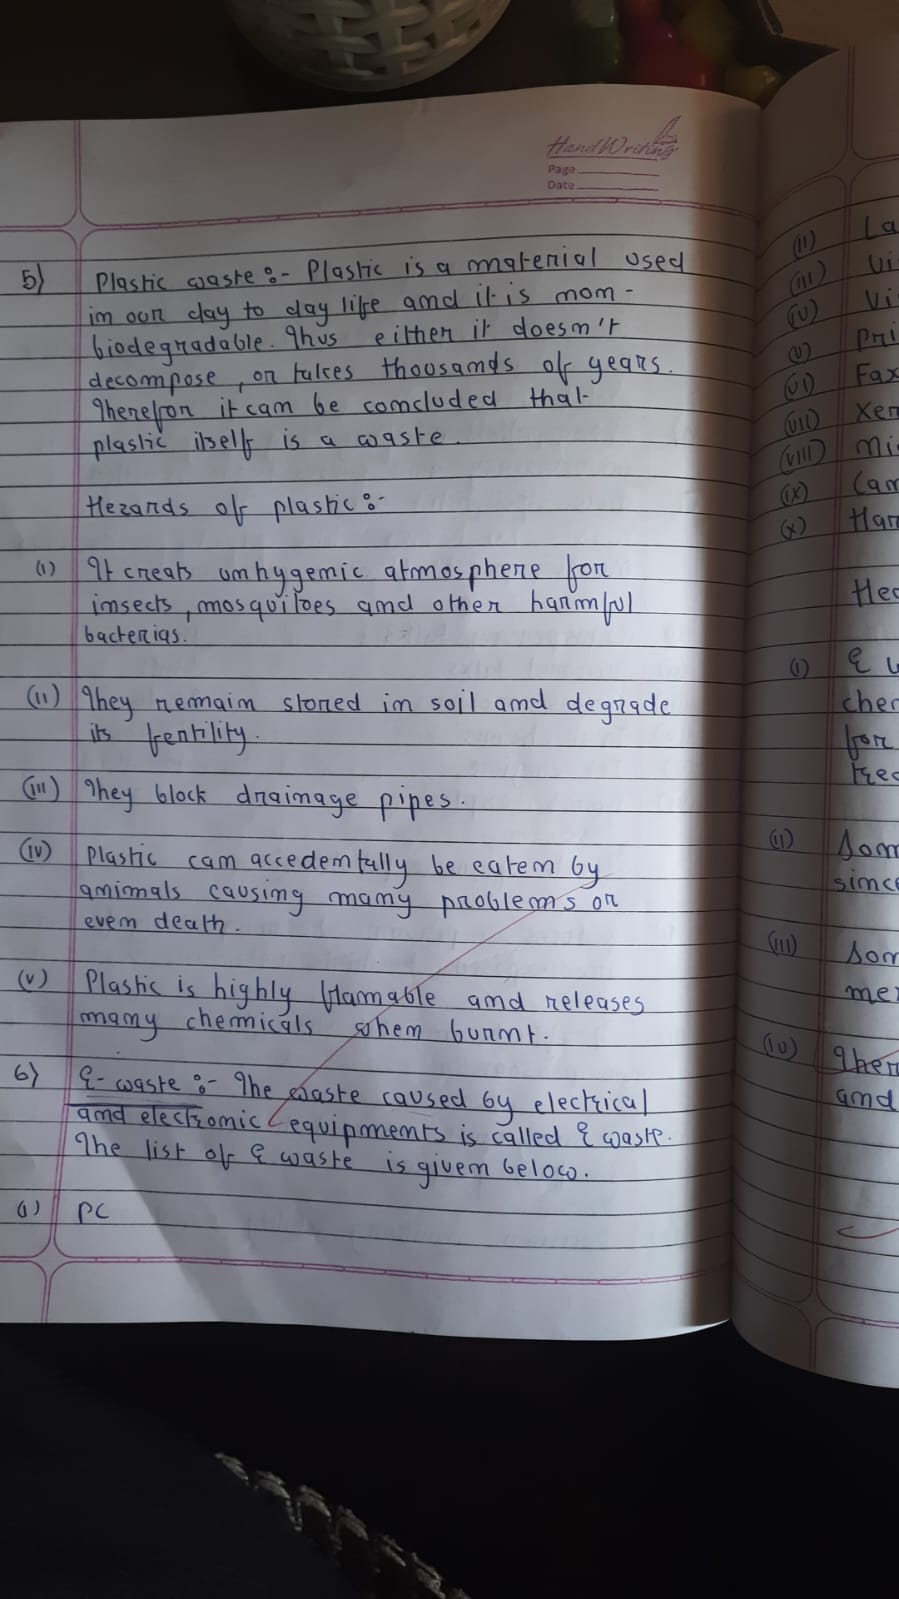 HandWriting
Page
Date
5) Plastic waste :- Plastic is a material used
in our day to day life and it is non-
biodegradable. Thus either it doesn't
decompose, or takes thousands of years.
Therefor it can be concluded that
plastic itself is a waste.
Hezards of plastic :-
(i) It creats unhygenic atmosphere for
insects, mosquitoes and other harmful
bacterias.
(ii) They remain stored in soil and degrade
its fertility.
(iii) They block drainage pipes.
(iv) Plastic can accedentally be eaten by
animals causing many problems or
even death.
(v) Plastic is highly flamable and releases
many chemicals when burnt.
6) E-waste :- The waste caused by electrical
and electronic equipments is called E waste.
The list of E waste is given below.
(i) PC
(ii) La
(iii) Vi
(iv) Vi
(v) Pri
(vi) Fax
(vii) Xer
(viii) Mi
(ix) Cam
(x) Har
Hec
(i) E w
chem
for
trea
(ii) Som
since
(iii) Som
mer
(iv) Ther
and